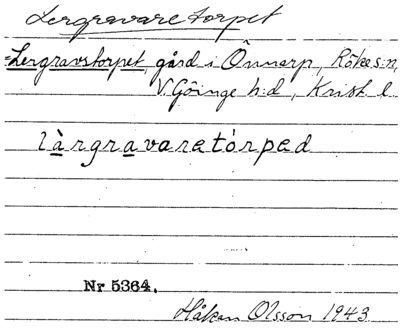 Lergravaretorpet
=Lergravstorpet, gård i Önnarp, Röke s:n,
V. Göinge h:d, Krist. l.
làrgravaretórped
Nr 5364.
Håkan Olsson 1943